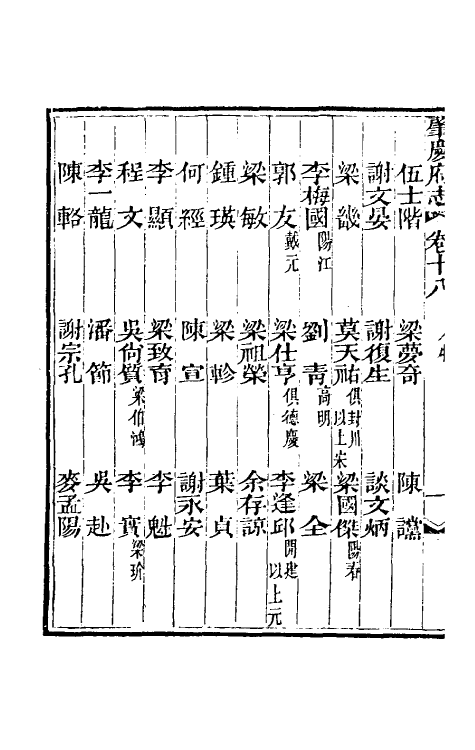 肇慶府志 卷十八 人物 一
伍士階 梁夢奇 陳讜
謝文晏 謝復生 談文炳
梁畿 莫天祐俱封川以上宋 梁國傑陽春
李梅國陽江 劉青高明 梁全
郭友戴元 梁仕亨俱德慶 李逢邱開建以上元
梁敏 梁祖榮 余存諒
鍾瑛 梁軫 葉貞
何經 陳宣 謝永安
李顯 梁致育 李魁
程文 吳尙質梁伯鴻 李實梁玠
李一龍 潘節 吳赴
陳輅 謝宗孔 麥孟陽